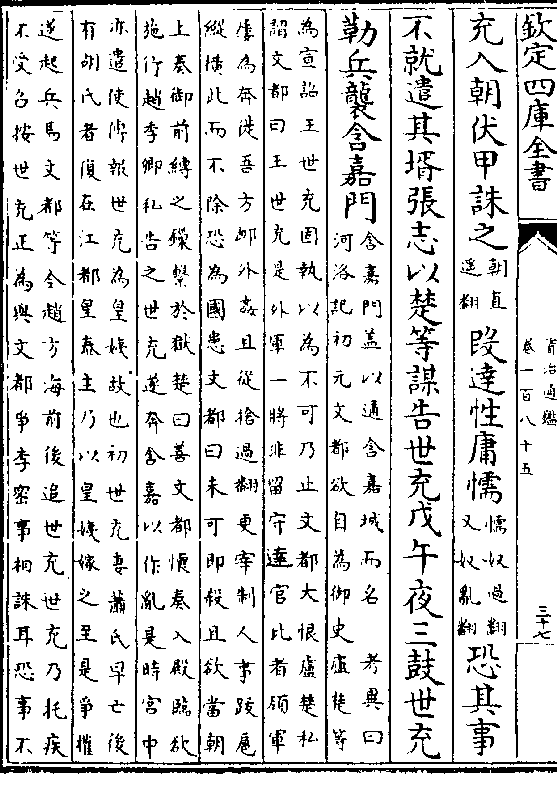 欽定四庫全書
資治通鑑
卷一百八十五
三十七
充入朝伏甲誅之朝直遥翻段達性庸懦懦奴過翻又奴亂翻恐其事
不就遣其壻張志以楚等謀告世充戊午夜三鼓世充
勒兵襲含嘉門含嘉門蓋以通含嘉城而名 考異曰
河洛記初元文都欲自為御史盧楚等
為宣詔王世充固執以為不可乃止文都大恨盧楚私
謂文都曰王世充是外軍一將非留守達官比者領軍
屢為奔徙吾方卹外姦且從捨過翻更宰制人事跋扈
縱橫此而不除恐為國患文都曰未可即殺且欲當朝
上奏御前縛之鏁繫於獄楚曰善文都懷奏入殿臨欲
施行趙季卿私告之世充遂奔含嘉以作亂是時宮中
亦遣使傳報世充為皇姨故也初世充妻蕭氏早亡後
有胡氏者復在江都皇泰主乃以皇姨嫁之至是爭權
遂起兵馬文都等令趙方海前後追世充世充乃托疾
不受召按世充正為與文都爭李密事相誅耳恐事不